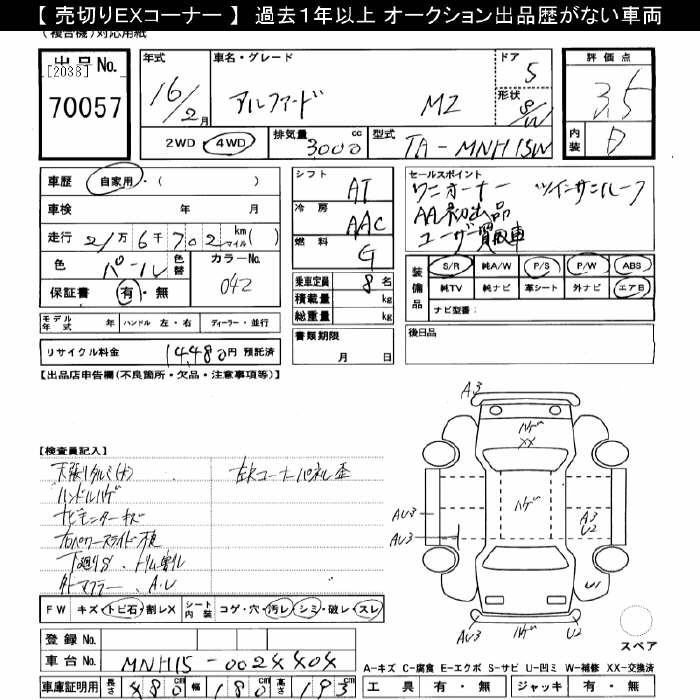 【 売切りEXコーナー 】 過去1年以上 オークション出品歴がない車両
(複合機)対応用紙
出品No.
[2038]
70057
年式
16/2月
車名・グレード
アルファード MZ
ドア
5
形状
2WD 4WD
排気量 3000 cc
型式 TA-MNH15W
評価点
3.5
内装
D
車歴 自家用・( )
車検 年 月
走行 21万6千702 km マイル( )
色 パール
色替
カラーNo.
042
保証書 有・無
モデル年式 年 ハンドル 左・右 ディーラー・並行
リサイクル料金 14,480円 預託済
シフト
AT
冷房
AAC
燃料
G
乗車定員 8名
積載量 kg
総重量 kg
書類期限
月 日
セールスポイント
ワンオーナー ツインサンルーフ
AA初出品
ユーザー買取車
装備品
S/R 純A/W P/S P/W ABS
純TV 純ナビ 革シート 外ナビ エアB
ナビ型番:
後日品
【出品店申告欄(不良箇所・欠品・注意事項等)】
【検査員記入】
天張りタルミ(大)
左Rコーナーパネル歪
ハンドルハゲ
ナビモニターキズ
右パワースライド不良
下廻りS、
外マフラー、A.U
FW キズ・トビ石・割レX
シート内装 コゲ・穴・汚レ・シミ・破レ・スレ
登録No.
車台No. MNH15-0024404
車庫証明用 長さ 480cm 幅 180cm 高さ 193cm
A3
ハゲ
XX
ハゲ
AU3
AU3
A3
U2
U1
AU3
ハゲ
U2
スペア
A-キズ C-腐食 E-エクボ S-サビ U-凹ミ W-補修 XX-交換済
工具 有・無 ジャッキ 有・無